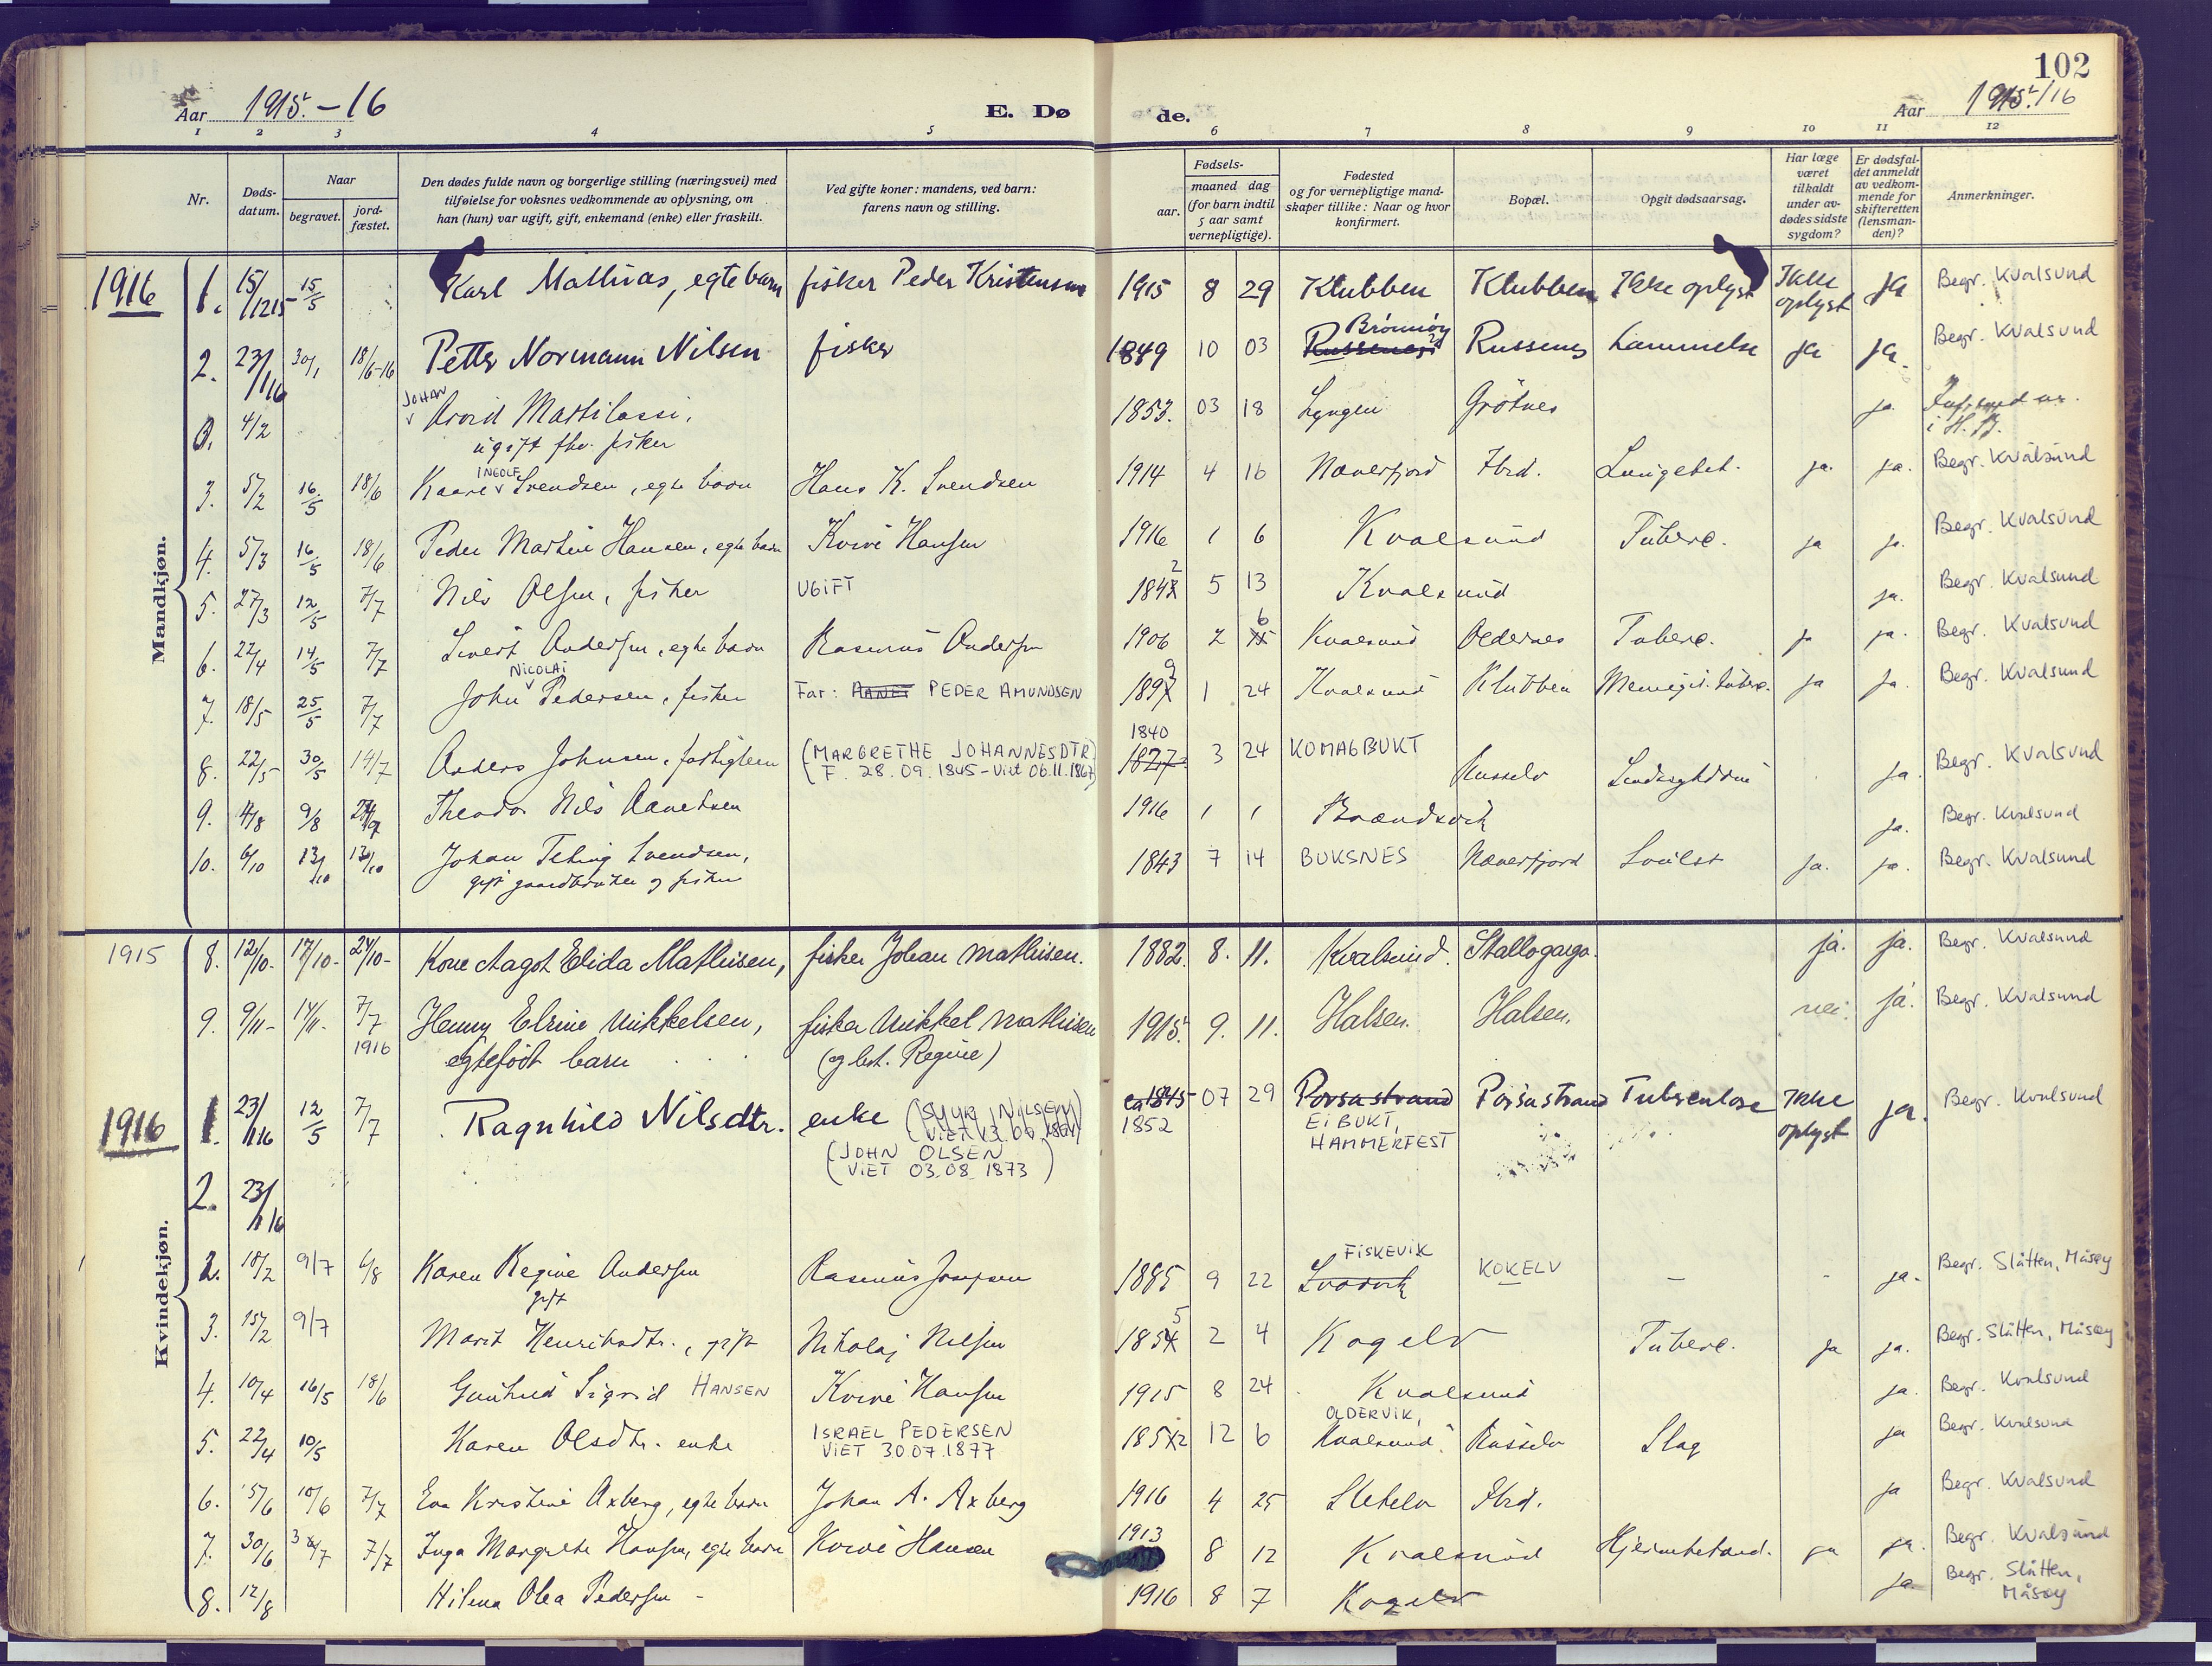 102
Aar 1915.-16
E. Dø
de.
Aar 1915./16
1 2 3 4 5 6 7 8 9 10 11 12
Nr.
Døds-
datum.
Naar
begravet.
jord-
fæstet.
Den dødes fulde navn og borgerlige stilling (næringsvei) med
tilføielse for voksnes vedkommende av oplysning, om
han (hun) var ugift, gift, enkemand (enke) eller fraskilt.
Ved gifte koner: mandens, ved barn:
farens navn og stilling.
Fødsels-
aar.
maaned dag
(for barn indtil
5 aar samt
vernepligtige).
Fødested
og for vernepligtige mand-
skaper tillike: Naar og hvor
konfirmert.
Bopæl.
Opgit dødsaarsag.
Har læge
været
tilkaldt
under av-
dødes sidste
sygdom?
Er dødsfal-
det anmeldt
av vedkom-
mende for
skifteretten
(lensman-
den)?
Anmerkninger.
Mandkjøn.
1916 1. 15/1215 15/5 Karl Mathias, egte barn fisker Peder Kristensen 1915 8 29 Klubben Klubben Ikke oplyst Ikke oplyst ja Begr. Kvalsund
2. 23/1 16 30/1 18/6-16 Petter Normann Nilsen fisker 1849 10 03 Russenes Brönnöy Russenes Lammelse ja ja. Begr. Kvalsund
4/2 JOHAN Arvid Martilassi, 1853. 03 18 Lyngen Grötnes ja
ugift fhv. fisker i H.
3. 5/2 16/5 18/6 Kaare INGOLF Svendsen, egte barn Hans K. Svendsen 1914 4 16 Næverfjord Ibid. Lungebet. ja. ja. Begr. Kvalsund
4. 5/3 16/5 18/6 Peder Martin Hansen, egte barn Kvivi Hansen 1916 1 6 Kvalsund Tuberc. ja ja. Begr. Kvalsund
5. 27/3 12/5 7/7 Nils Olsen, fisker UGIFT 1842 5 13 Kvalsund ja. Begr. Kvalsund
6. 22/4 14/5 7/7 Sivert Andersen, egte barn Rasmus Andersen 1906 2 6 Kvalsund Oldernes Tuberc. ja ja. Begr. Kvalsund
7. 18/5 25/5 7/7 John NICOLAI Pedersen, fisker Far: PEDER AMUNDSEN 1899 1 24 Kvalsund Klubben Meningit. tuberc. ja ja. Begr. Kvalsund
8. 22/5 30/5 14/7 Anders Johnsen, fattiglem (MARGRETHE JOHANNESDTR 1840 1827 3 24 KOMAGBUKT Russelv ja. Begr. Kvalsund
F. 28.09.1845 - Viet 06.11.1867)
9. 4/8 9/8 Theodor Nils Aanetsen 1916 1 1 Brændsvik ja. Begr. Kvalsund
10. 6/10 13/10 13/10 Johan Svendsen, 1843 7 14 BUKSNES Næverfjord Svulst ja. ja. Begr. Kvalsund
gift gaardbruker og fisker
Kvindekjøn.
1915 8. 12/10- 17/10- 24/10- Kone Aagot Elida Mathisen, fisker Johan Mathisen. 1882. 8. 11. Kvalsund. Stallogargo. ja. ja. Begr. Kvalsund
9. 9/11- 14/11- 7/7 1916 Henny Elsine Mikkelsen, fisker Mikkel Mathisen 1915. 9. 11. Halsen. Halsen. nei. ja. Begr. Kvalsund
egtefødt barn (og hst. Regine)
1916 1. 23/1 16 12/5 7/7 Ragnhild Nilsdtr. enke (SJUR NILSEN ca 1845 07 29 Porsastrand Porsastrand Tuberculose Ikke oplyst ja. Begr. Kvalsund
1852 EIBUKT,
HAMMERFEST
(JOHN OLSEN
VIET 03.08.1873)
2. 23/1 16
2. 18/2 9/7 6/8 Karen Regine Andersen Rasmus Josefsen 1885 9 22 FISKEVIK KOKELV – - ja. Begr. Slåtten, Måsøy
gift
3. 15/2 9/7 Marit Henriksdtr., gift Nikolaj Nilsen 1855 2 4 Kogelv Tuberc. ja ja. Begr. Slåtten, Måsøy
4. 10/4 16/5 18/6 Gunhild Sigrid HANSEN Kvivi Hansen 1915 8 24 Kvalsund ja. Begr. Kvalsund
5. 22/4 10/5 Karen Olsdtr. enke ISRAEL PEDERSEN 1852 12 6 OLDERVIK, Kvalsund Russelv Slag ja Begr. Kvalsund
VIET 30.07.1877
6. 5/6 10/6 7/7 Eva Kristine Axberg, egte barn Johan A. Axberg 1916 4 25 Skebelv Ibid. ja Begr. Kvalsund
7. 30/6 7/7 Inga Margrethe Hansen, egte barn Kvivi Hansen 1913 8 12 Kvalsund Hjernebetænd. ja ja. Begr. Kvalsund
8. 12/8 Hilma Olea Pedersen - 1916 8 7 Kogelv ja. Begr. Slåtten,
Måsøy